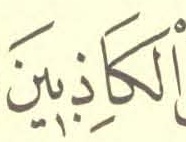 ٱلْكَاذِبِينَ